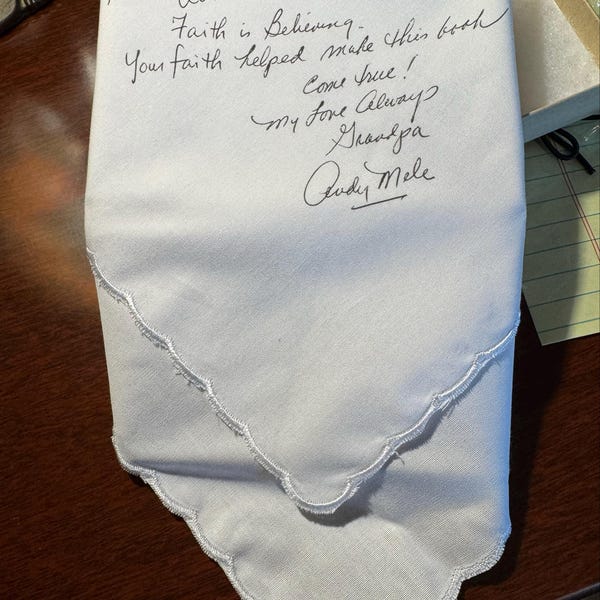 Faith is Believing.
Your faith helped make this book
come true!
My Love Always
Grandpa
Andy Mele